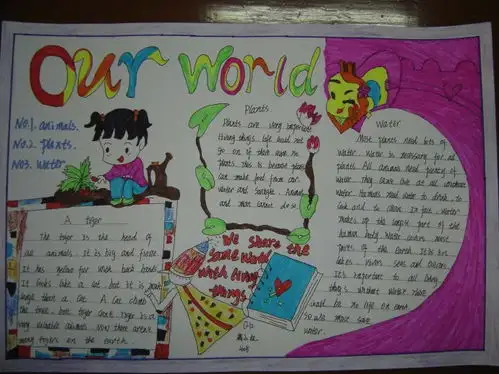 Our world
No.1. animals.
No.2. plants.
No3. Water
Plants
Plants are very important
living things. Life had not
go on if there were no
plants. This is because plants
can make food from air.
water and sunlight. Animals
and man cannot do so.
Water
Most plants need lots of
water. Water is necessary for all
plants. All animals need plenty of
water. They can't live at all without
water. Humans need water to drink to
cook and to clean. In fact water
makes up the largest part of the
human body. Water covers most
parts of the earth. It is in
lakes rivers seas and
It's important to all living
things without water there
would be no life on earth
so we must save
water.
A tiger
The tiger is the head of
all animals. it is big and fierce
It has yellow fur with black bands
It looks like a cat, but it is much
large than a cat. A cat climb
the tree, but tiger can't. Tiger is a
very valuable animals. Now there aren't
many tigers on the earth.
We share the
same world
with living
things